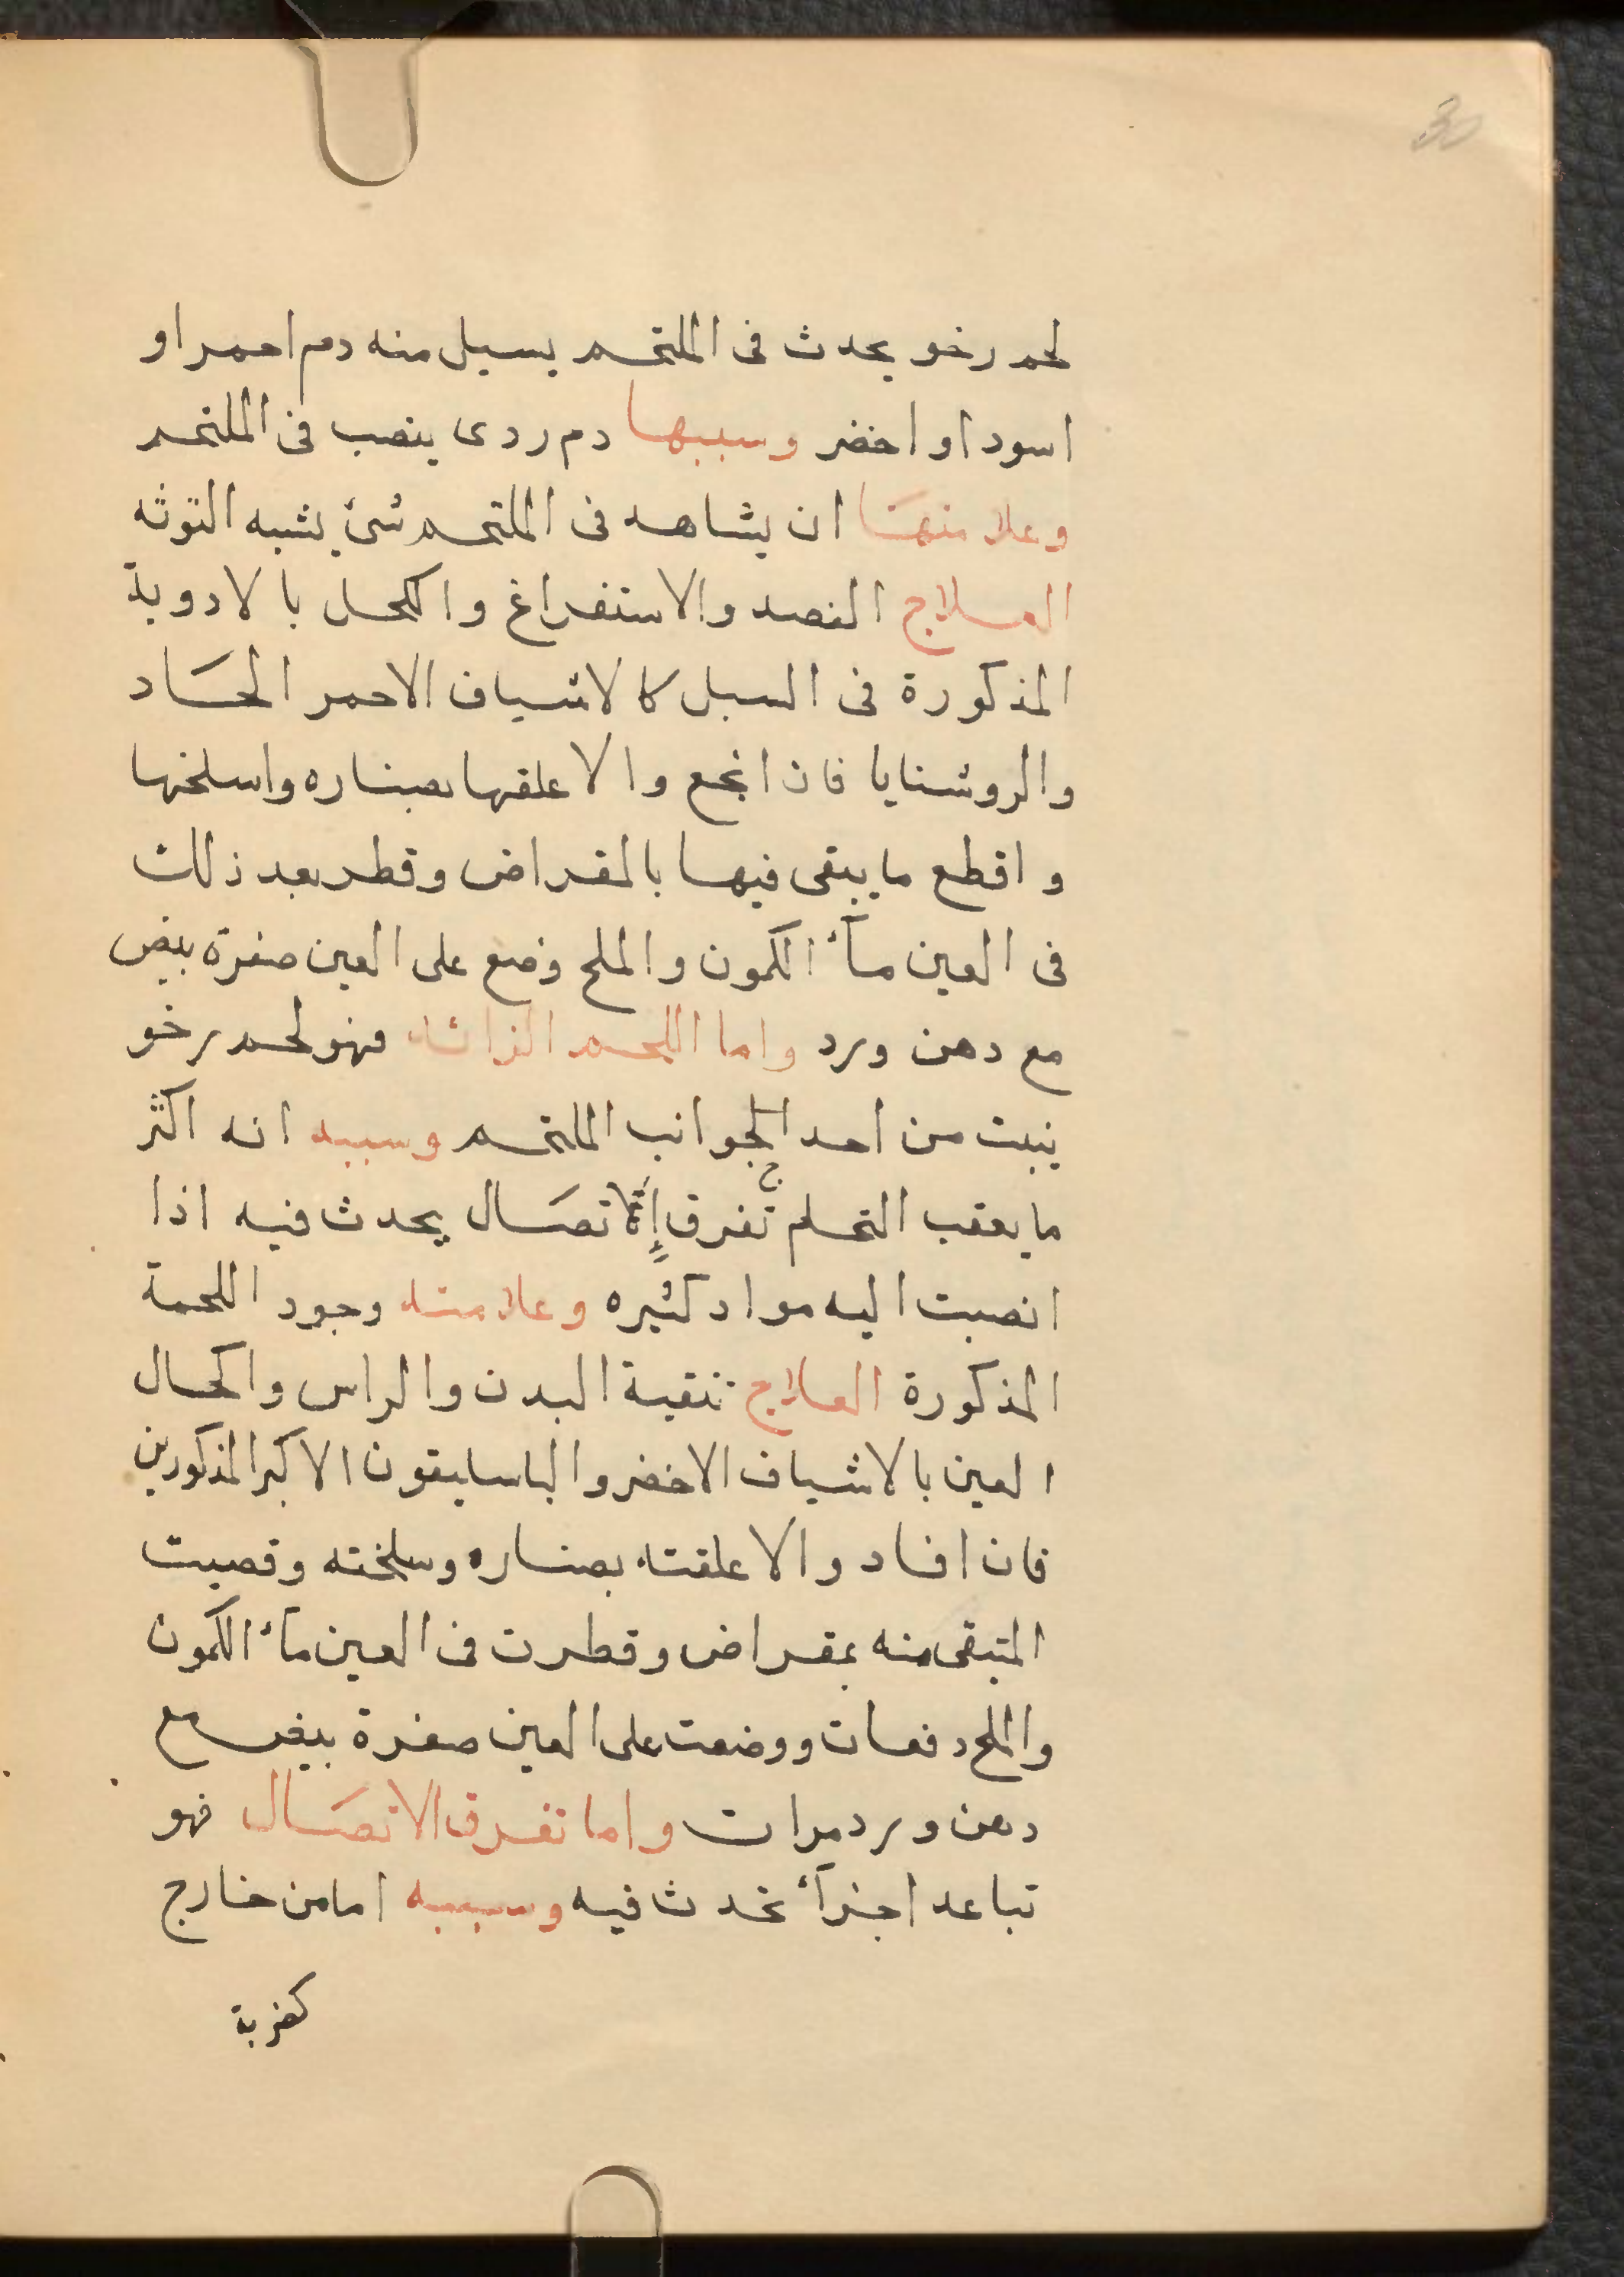 30
لحم رخو يحدث فى الملتحم يسيل منه دم احمر او
اسود او اخضر وسببها دم ردى ينصب فى الملتحم
وعلامتها ان يشاهد فى الملتحم شئ يشبه التوثه
العلاج الفصد والاستفراغ واكحل بالادوية
المذكورة فى السبل كالاشياف الاحمر الحاد
والروشنايا فان انجع والا علقها بصناره واسلخها
واقطع ما يبقى فيها بالمقراض وقطر بعد ذلك
فى العين مآء الكمون والملح وضع على العين صفرة بيض
مع دهن ورد واما اللحم الزائد فهو لحم رخو
نبت من احد الجوانب الملتحم وسببه انه اكثر
ما يعقب التحلم تفرق اتصال يحدث فيه اذا
انصبت اليه مواد كثيره وعلامته وجود اللحمة
المذكورة العلاج تنقية البدن والراس واكحال
العين بالاشياف الاخضر والباسليقون الاكبر المذكورين
فان افاد والا علقته بصناره وسلخته وقصيت
المتبقى منه بمقراض وقطرت فى العين مآء الكمون
والملح دفعات ووضعت على العين صفرة بيض مع
دهن ورد مرات واما تفرق الاتصال فهو
تباعد اجزآء تحدث فيه وسببه اما من خارج
كضربة